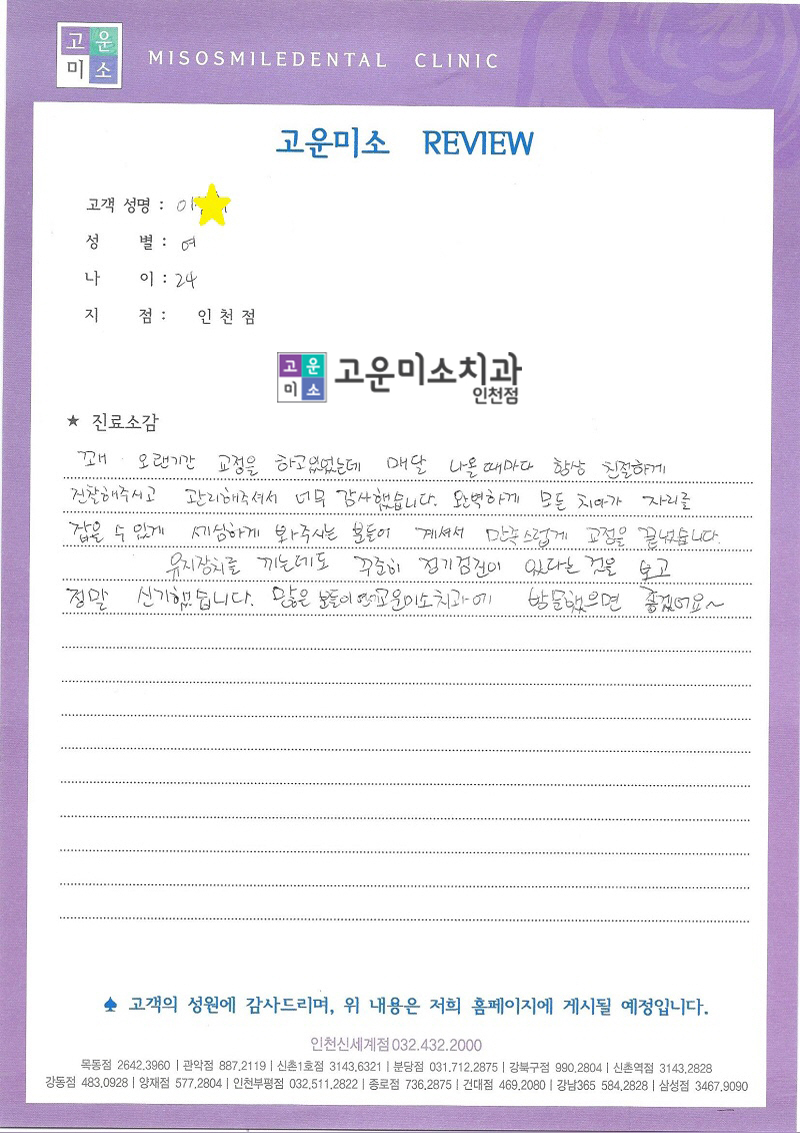 고운
미소
MISOSMILEDENTAL CLINIC
고운미소 REVIEW
고객 성명 : 이
성 별 : 여
나 이 : 24
지 점 : 인천점
고운
미소
고운미소치과
인천점
★ 진료소감
꽤 오랜기간 교정을 하고있었는데 매달 나올때마다 항상 친절하게
진찰해주시고 관리해주셔서 너무 감사했습니다. 완벽하게 모든 치아가 자리를
잡을 수 있게 세심하게 봐주시는 분들이 계셔서 만족스럽게 교정을 끝냈습니다.
유지장치를 끼는데도 꾸준히 정기검진이 있다는 것을 보고
정말 신기했습니다. 많은 분들이 고운미소치과에 방문했으면 좋겠어요~
♠ 고객의 성원에 감사드리며, 위 내용은 저희 홈페이지에 게시될 예정입니다.
인천신세계점 032.432.2000
목동점 2642.3960 | 관악점 887.2119 | 신촌1호점 3143.6321 | 분당점 031.712.2875 | 강북구점 990.2804 | 신촌역점 3143.2828
강동점 483.0928 | 양재점 577.2804 | 인천부평점 032.511.2822 | 종로점 736.2875 | 건대점 469.2080 | 강남365 584.2828 | 삼성점 3467.9090